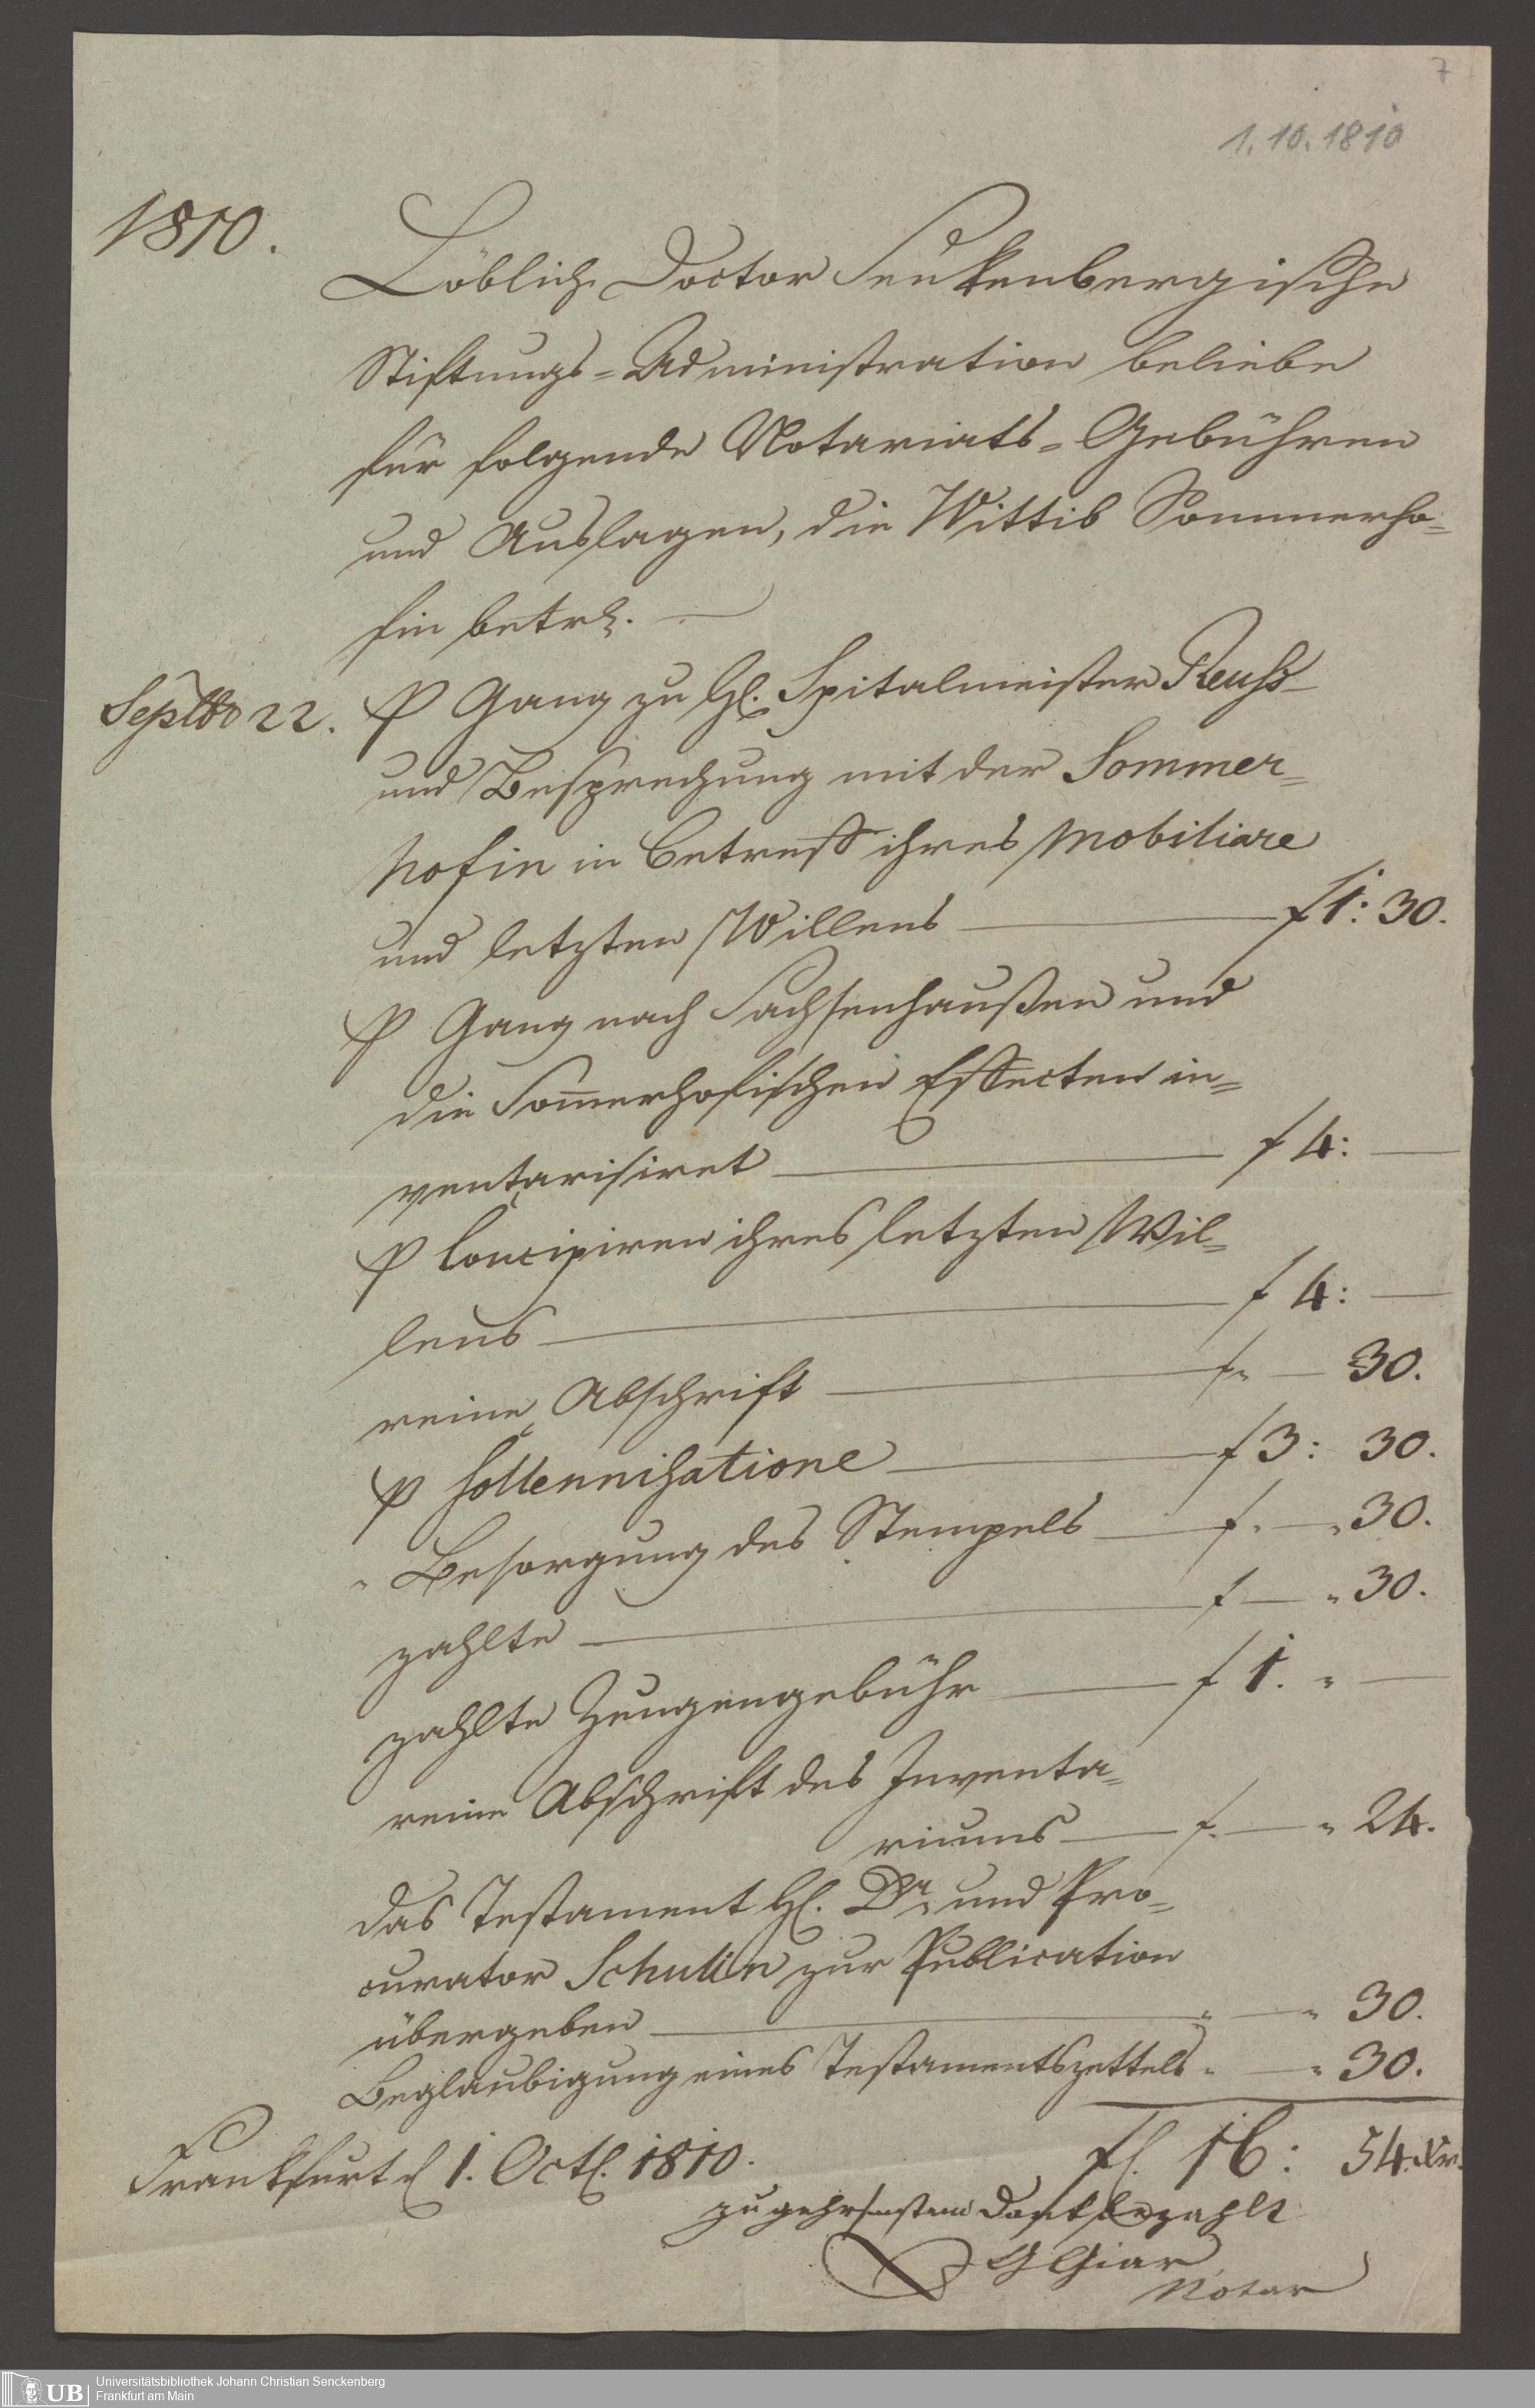 7
1.10.1810
1810.
Löblich Doctor Senkenbergische
Stiftungs-Administration beliebe
für folgende Notariats-Gebühren
und Auslagen, die Wittib Sommerho-
fin betr.
Septbr 22. p Gang zu H. Spitalmeister Reuß
und Besprechung mit der Sommer-
hofin in Betreff ihres Mobiliare
und letzten Willens f 1: 30.
p Gang nach Sachsenhaußen und
die Som̄erhofischen Effecten in-
ventarisiret f 4: —
p Concipiren ihres letzten Wil-
lens f 4: —
reine Abschrift f " — 30.
p Sollennisatione f 3: 30.
" Besorgung des Stempels f " — " 30.
zahlte f — " 30.
zahlte Zeugengebühr f 1. " —
reine Abschrift des Inventa-
riums f. — " 24.
das Testament H. Dr. und Pro-
curator Schulin zur Publication
übergeben " — " 30.
Beglaubigung eines Testamentszettels " — " 30.
Frankfurt d 1. Oct. 1810. fl. 16: 54 Xr.
zu gehorsamstem Dank bezahlt
G Giar
Notar
UB
Universitätsbibliothek Johann Christian Senckenberg
Frankfurt am Main